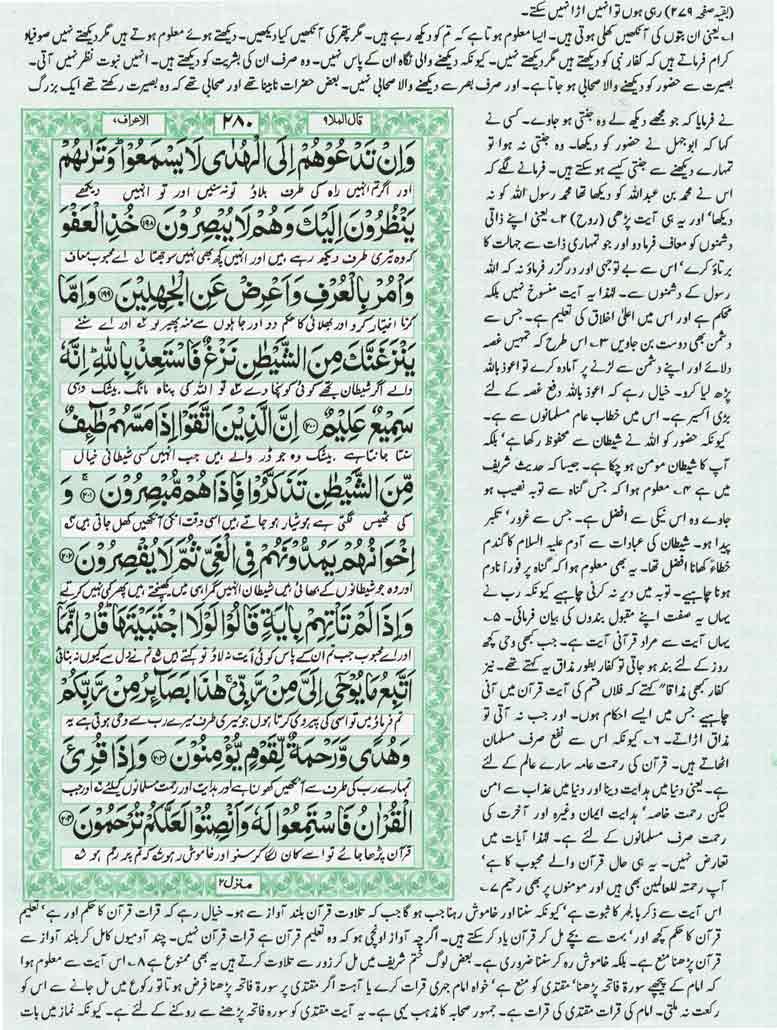 (بقیہ صفحہ ۲۷۹) رہی ہوں تو انہیں اڑا نہیں سکتے۔
۱ یعنی ان بتوں کی آنکھیں کھلی ہوتی ہیں۔ ایسا معلوم ہوتا ہے کہ تم کو دیکھ رہے ہیں۔ مگر پتھر کی آنکھیں کیا دیکھیں۔ دیکھتے ہوئے معلوم ہوتے ہیں مگر دیکھتے نہیں صوفیاء
کرام فرماتے ہیں کہ کفار نبی کو دیکھتے ہیں مگر دیکھتے نہیں۔ کیونکہ دیکھنے والی نگاہ ان کے پاس نہیں۔ وہ صرف ان کی بشریت کو دیکھتے ہیں۔ انہیں نبوت نظر نہیں آتی۔
بصیرت سے حضور کو دیکھنے والا صحابی ہو جاتا ہے۔ اور صرف بصر سے دیکھنے والا صحابی نہیں۔ بعض حضرات نابینا تھے اور صحابی تھے کہ وہ بصیرت رکھتے تھے ایک بزرگ
قال الملا۹
۲۸۰
الاعراف۷
وَاِنْ تَدْعُوْهُمْ اِلَى الْهُدٰى لَا يَسْمَعُوْا ؕ وَتَرٰىهُمْ
اور اگر تم انہیں راہ کی طرف بلاؤ تو نہ سنیں اور تو انہیں دیکھے
يَنْظُرُوْنَ اِلَيْكَ وَهُمْ لَا يُبْصِرُوْنَ ۱۹۸ خُذِ الْعَفْوَ
کہ وہ تیری طرف دیکھ رہے ہیں اور انہیں کچھ بھی نہیں سوجھتا اے محبوب معاف
وَاْمُرْ بِالْعُرْفِ وَاَعْرِضْ عَنِ الْجٰهِلِيْنَ ۱۹۹ وَاِمَّا
کرنا اختیار کرو اور بھلائی کا حکم دو اور جاہلوں سے منہ پھیر لو اور اے سننے
يَنْزَغَنَّكَ مِنَ الشَّيْطٰنِ نَزْغٌ فَاسْتَعِذْ بِاللّٰهِ ؕ اِنَّهٗ
والے اگر شیطان تجھے کوئی کونچا دے تو اللہ کی پناہ مانگ بیشک وہی
سَمِيْعٌ عَلِيْمٌ ۲۰۰ اِنَّ الَّذِيْنَ اتَّقَوْا اِذَا مَسَّهُمْ طٰٓئِفٌ
سنتا جانتا ہے بیشک وہ جو ڈر والے ہیں جب انہیں کسی شیطانی خیال
مِّنَ الشَّيْطٰنِ تَذَكَّرُوْا فَاِذَا هُمْ مُّبْصِرُوْنَ ۲۰۱ وَ
کی ٹھیس لگتی ہے ہوشیار ہو جاتے ہیں اسی وقت انکی آنکھیں کھل جاتی ہیں
اِخْوَانُهُمْ يَمُدُّوْنَهُمْ فِي الْغَيِّ ثُمَّ لَا يُقْصِرُوْنَ ۲۰۲
اور وہ جو شیطانوں کے بھائی ہیں شیطان انہیں گمراہی میں کھینچتے ہیں پھر کمی نہیں کرتے
وَاِذَا لَمْ تَاْتِهِمْ بِاٰيَةٍ قَالُوْا لَوْلَا اجْتَبَيْتَهَا ؕ قُلْ اِنَّمَاۤ
اور اے محبوب جب تم ان کے پاس کوئی آیت نہ لاؤ تو کہتے ہیں تم نے دل سے کیوں نہ بنائی
اَتَّبِعُ مَا يُوْحٰۤى اِلَيَّ مِنْ رَّبِّيْ ۚ هٰذَا بَصَآئِرُ مِنْ رَّبِّكُمْ
تم فرماؤ میں تو اسی کی پیروی کرتا ہوں جو میری طرف میرے رب سے وحی ہوتی ہے یہ
وَهُدًى وَّرَحْمَةٌ لِّقَوْمٍ يُّؤْمِنُوْنَ ۲۰۳ وَاِذَا قُرِئَ
تمہارے رب کی طرف سے آنکھیں کھولنا ہے اور ہدایت اور رحمت مسلمانوں کیلئے اور جب
الْقُرْاٰنُ فَاسْتَمِعُوْا لَهٗ وَاَنْصِتُوْا لَعَلَّكُمْ تُرْحَمُوْنَ ۲۰۴
قرآن پڑھا جائے تو اسے کان لگا کر سنو اور خاموش رہو کہ تم پر رحم ہو
منزل۲
نے فرمایا کہ جو مجھے دیکھ لے وہ جنتی ہو جاوے۔ کسی نے
کہا کہ ابوجہل نے حضور کو دیکھا۔ وہ جنتی نہ ہوا تو
تمہارے دیکھنے سے جنتی کیسے ہو سکتے ہیں۔ فرمانے لگے کہ
اس نے محمد بن عبداللہ کو دیکھا تھا محمد رسول اللہ کو نہ
دیکھا، اور یہ ہی آیت پڑھی (روح) ۲ یعنی اپنے ذاتی
دشمنوں کو معاف فرما دو اور جو تمہاری ذات سے جہالت کا
برتاؤ کرے، اس سے بے توجہی اور درگزر فرماؤ نہ کہ اللہ
رسول کے دشمنوں سے۔ لہٰذا یہ آیت منسوخ نہیں بلکہ
محکم ہے اور اس میں اعلیٰ اخلاق کی تعلیم ہے۔ جس سے
دشمن بھی دوست بن جاویں ۳ اس طرح کہ تمہیں غصہ
دلائے اور اپنے دشمن سے لڑنے پر آمادہ کرے تو اعوذ باللہ
پڑھ لیا کرو۔ خیال رہے کہ اعوذ باللہ دفع غصہ کے لئے
بڑی اکسیر ہے۔ اس میں خطاب عام مسلمانوں سے ہے۔
کیونکہ حضور کو اللہ نے شیطان سے محفوظ رکھا ہے، بلکہ
آپ کا شیطان مومن ہو چکا ہے۔ جیسا کہ حدیث شریف
میں ہے ۴ معلوم ہوا کہ جس گناہ سے توبہ نصیب ہو
جاوے وہ اس نیکی سے افضل ہے۔ جس سے غرور، تکبر
پیدا ہو۔ شیطان کی عبادات سے آدم علیہ السلام کا گندم
خطاءً کھانا افضل تھا۔ یہ بھی معلوم ہوا کہ گناہ پر فورا نادم
ہونا چاہیے۔ توبہ میں دیر نہ کرنی چاہیے کیونکہ رب نے
یہاں یہ صفت اپنے مقبول بندوں کی بیان فرمائی۔ ۵
یہاں آیت سے مراد قرآنی آیت ہے۔ جب کبھی وحی کچھ
روز کے لئے بند ہو جاتی تو کفار بطور مذاق یہ کہتے تھے۔ نیز
کفار کبھی مذاقاً کہتے کہ فلاں قسم کی آیت قرآن میں آنی
چاہیے جس میں ایسے احکام ہوں۔ اور جب نہ آتی تو
مذاق اڑاتے۔ ۶ کیونکہ اس سے نفع صرف مسلمان
اٹھاتے ہیں۔ قرآن کی رحمت عامہ سارے عالم کے لئے
ہے۔ یعنی دنیا میں ہدایت دینا اور دنیا میں عذاب سے امن
لیکن رحمت خاصہ، ہدایت ایمان وغیرہ اور آخرت کی
رحمت صرف مسلمانوں کے لئے ہے۔ لہٰذا آیات میں
تعارض نہیں۔ یہ ہی حال قرآن والے محبوب کا ہے،
آپ رحمتہ للعالمین بھی ہیں اور مومنوں پر بھی رحیم ۷
اس آیت سے ذکر بالجہر کا ثبوت ہے، کیونکہ سننا اور خاموش رہنا جب ہو گا جب کہ تلاوت قرآن بلند آواز سے ہو۔ خیال رہے کہ قرات قرآن کا حکم اور ہے، تعلیم
قرآن کا حکم کچھ اور، بہت سے بچے مل کر قرآن یاد کر سکتے ہیں۔ اگرچہ آواز اونچی ہو کہ وہ تعلیم قرآن ہے قرات قرآن نہیں۔ چند آدمیوں کامل کر بلند آواز سے
قرآن پڑھنا منع ہے۔ بلکہ خاموش رہ کر سننا ضروری ہے۔ بعض لوگ ختم شریف میں مل کر زور سے تلاوت کرتے ہیں یہ بھی ممنوع ہے ۸ اس آیت سے معلوم ہوا
کہ امام کے پیچھے سورۃ فاتحہ پڑھنا، مقتدی کو منع ہے، خواہ امام جہری قرات کرے یا آہستہ اگر مقتدی پر سورۃ فاتحہ پڑھنا فرض ہوتا تو رکوع میں مل جانے سے اس کو
رکعت نہ ملتی۔ امام کی قرات مقتدی کی قرات ہے۔ جمہور صحابہ کا مذہب یہی ہے۔ یہ آیت مقتدی کو سورہ فاتحہ پڑھنے سے روکنے کے لئے ہے۔ کیونکہ نماز میں بات